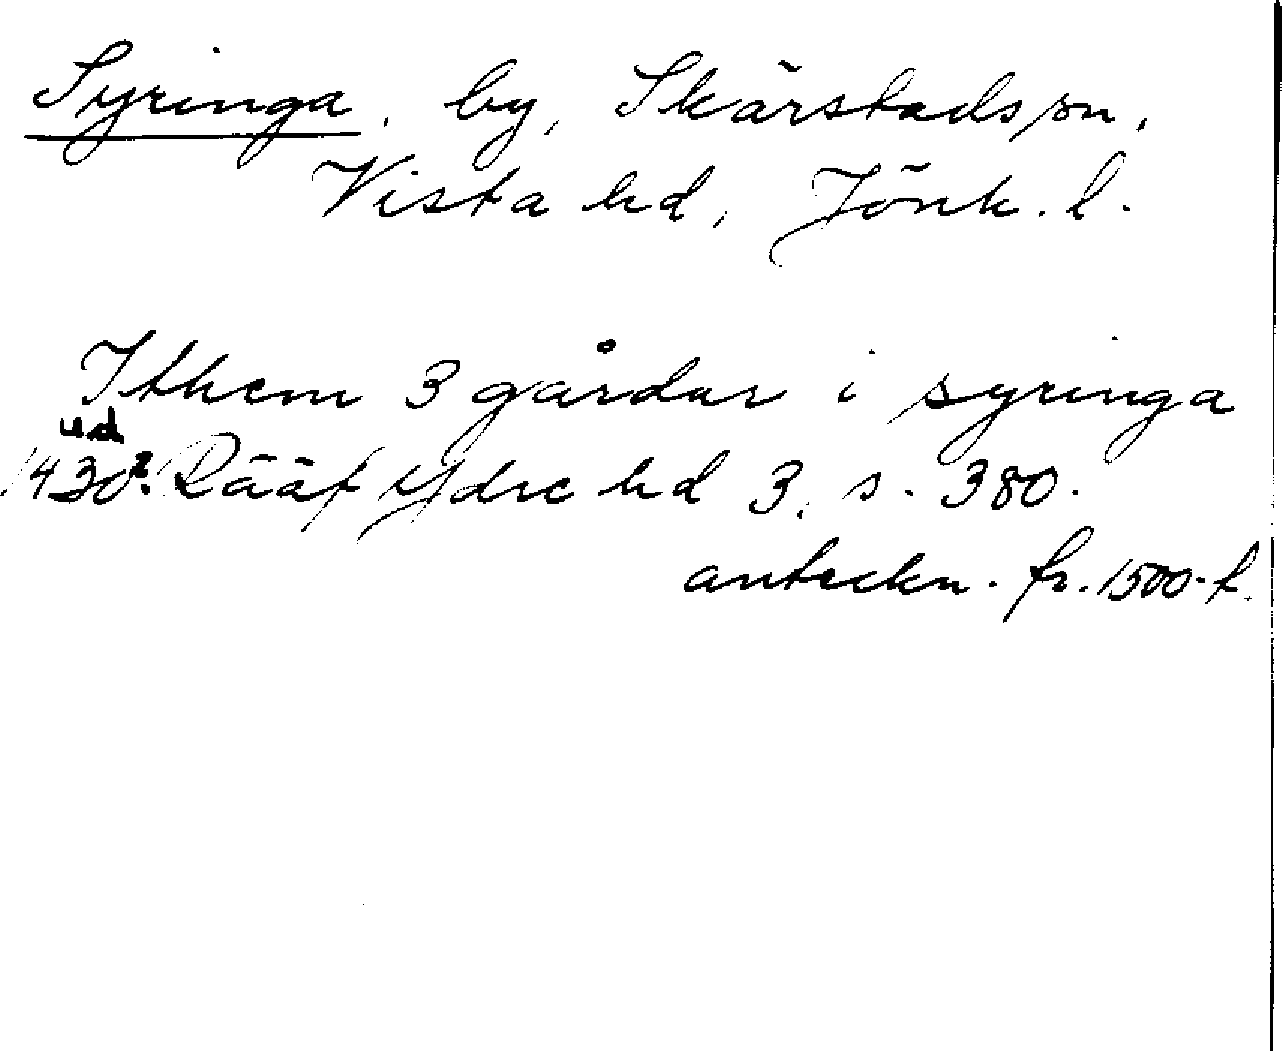 Syringa, by, Skärstads sn,
Vista hd, Jönk. l.
Ithem 3 gårdar i syringa
ud
1430?. Rääf Ydre hd 3, s. 380.
anteckn. fr. 1500-t.